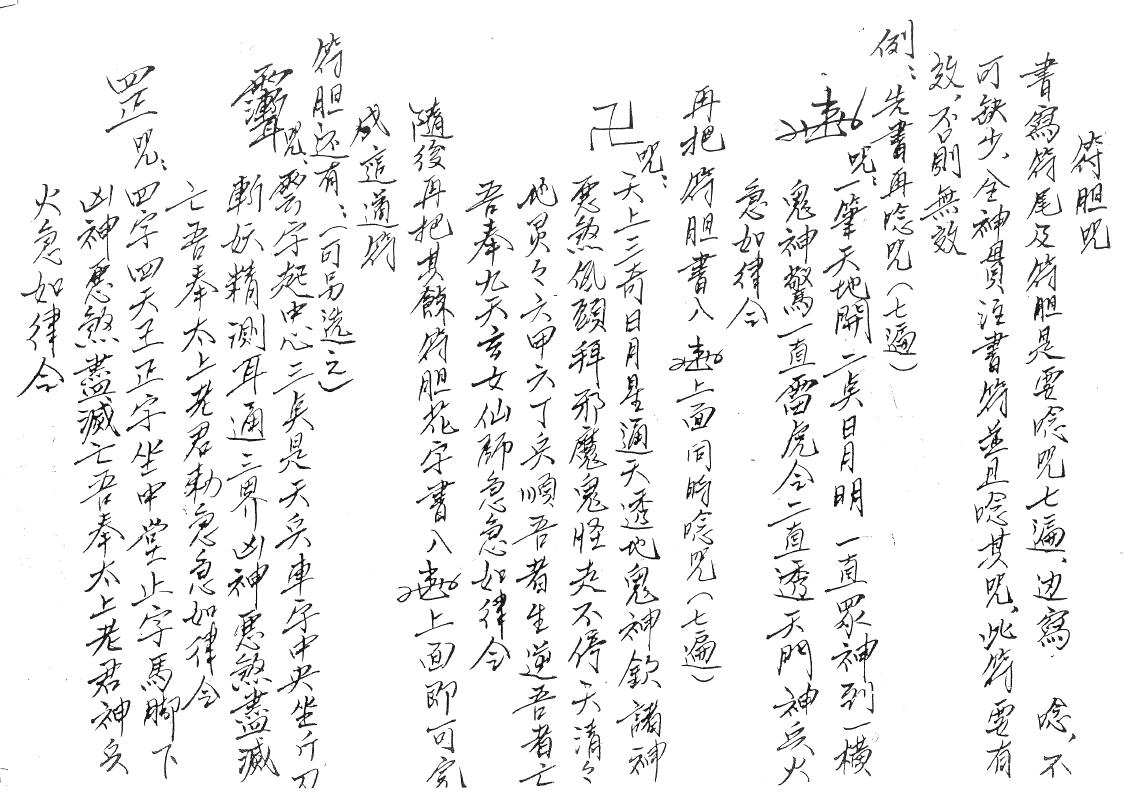 符胆咒
書寫符尾及符胆是要唸咒七遍、边寫 唸,不
可缺少,全神貫注書符並且唸其咒,此符要有
效,否則無效
例:先書再唸咒(七遍)
咒:一筆天地開二矣日月明一直眾神到一橫
鬼神驚一直雷虎令二直透天門神兵火
急如律令
再把符胆書入 上面同時唸咒(七遍)
卍咒:天上三奇日月星通天透地鬼神欽諸神
惡煞低頭拜邪魔鬼怪走不停天清々
地灵々六甲六丁兵順吾者生逆吾者亡
吾奉九天玄女仙師急急如律令
隨後再把其餘符胆花字書入 上面即可完
成這道符
符胆还有:(可另选之)
咒:雲字起中心三矣是天兵車字中央坐斤刃
斬妖精測耳通三界凶神惡煞盡滅
亡吾奉太上老君勅急急如律令
罡咒:四字四天王正字坐中堂止字馬脚下
凶神惡煞盡滅亡吾奉太上老君神兵
火急如律令